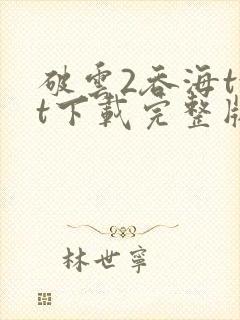 破雲2吞海t
t下載完整版
林世寧